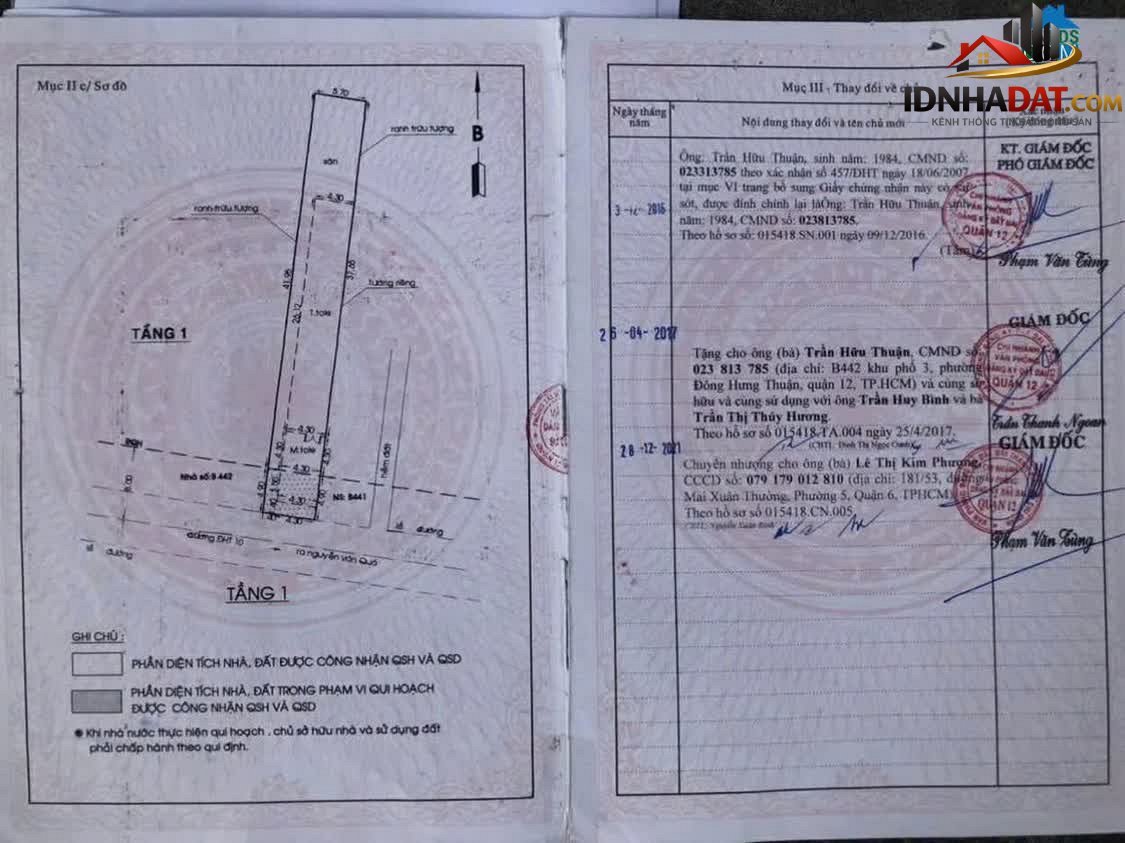 Mục II c/ Sơ đồ
5.70
ranh trừu tượng
B
sân
4.30
ranh trừu tượng
41.95
37.85
26.12
tường riêng
T.tole
TẦNG 1
4.30
M.tole
4.30
hẻm đất
Nhà số: B 442
6.00
4.90
4.30
NS: B441
4.30
lề đường
đường ĐHT 10
ra nguyễn văn Quá
lề đường
TẦNG 1
GHI CHÚ :
PHẦN DIỆN TÍCH NHÀ, ĐẤT ĐƯỢC CÔNG NHẬN QSH VÀ QSD
PHẦN DIỆN TÍCH NHÀ, ĐẤT TRONG PHẠM VI QUI HOẠCH
ĐƯỢC CÔNG NHẬN QSH VÀ QSD
● Khi nhà nước thực hiện qui hoạch , chủ sở hữu nhà và sử dụng đất
phải chấp hành theo qui định.
DS
IDNHADAT.COM
KÊNH THÔNG TIN
Mục III - Thay đổi về
Ngày tháng
năm
Nội dung thay đổi và tên chủ mới
KT. GIÁM ĐỐC
PHÓ GIÁM ĐỐC
Ông: Trần Hữu Thuận, sinh năm: 1984, CMND số:
023313785 theo xác nhận số 457/ĐHT ngày 18/06/2007
tại mục VI trang bổ sung Giấy chứng nhận này có sai
sót, được đính chính lại là Ông: Trần Hữu Thuận, sinh
năm: 1984, CMND số: 023813785.
Theo hồ sơ số: 015418.SN.001 ngày 09/12/2016.
(Tâm)
CHI NHÁNH
VĂN PHÒNG
ĐĂNG KÝ ĐẤT ĐAI
QUẬN 12
Phạm Văn Tùng
26 -04- 2017
GIÁM ĐỐC
Tặng cho ông (bà) Trần Hữu Thuận, CMND số
023 813 785 (địa chỉ: B442 khu phố 3, phường
Đông Hưng Thuận, quận 12, TP.HCM) và cùng sở
hữu và cùng sử dụng với ông Trần Huy Bình và bà
Trần Thị Thúy Hương.
Theo hồ sơ số 015418.TA.004 ngày 25/4/2017.
CHI NHÁNH
VĂN PHÒNG
ĐĂNG KÝ ĐẤT ĐAI
QUẬN 12
Trần Thanh Ngoan
28 -12- 2021
GIÁM ĐỐC
Chuyển nhượng cho ông (bà) Lê Thị Kim Phượng,
CCCD số: 079 179 012 810 (địa chỉ: 181/53, đường
Mai Xuân Thưởng, Phường 5, Quận 6, TPHCM)
Theo hồ sơ số 015418.CN.005.
QUẬN 12
Phạm Văn Tùng